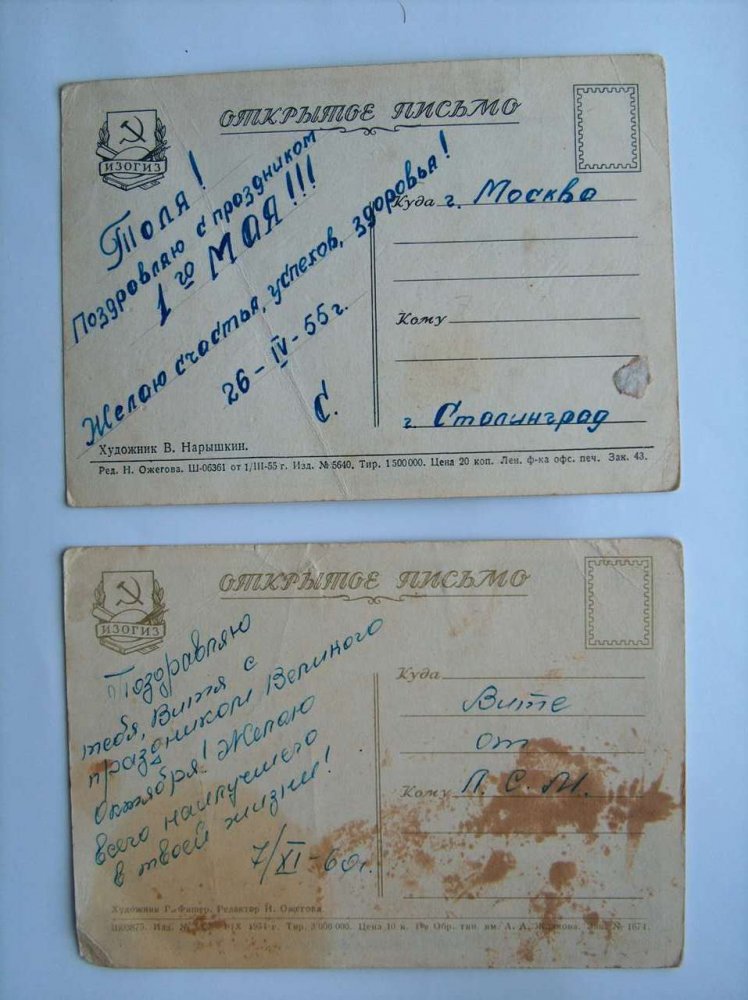 ИЗОГИЗ
ОТКРЫТОЕ ПИСЬМО
Толя!
Поздравляю с праздником
1го МАЯ!!!
Желаю счастья, успехов, здоровья!
26-IV-55г.
С.
Куда г. Москва
Кому
г. Сталинград
Художник В. Нарышкин.
Ред. Н. Ожегова. Ш-06361 от 1/III-55 г. Изд. № 5640. Тир. 1 500 000. Цена 20 коп. Лен. ф-ка офс. печ. Зак. 43.
ИЗОГИЗ
ОТКРЫТОЕ ПИСЬМО
Поздравляю
тебя, Витя с
праздником Великого
октября! Желаю
всего наилучшего
в твоей жизни!
7/XI-60г.
Куда
Вите
от
Кому Л. С. М.
Художник Г. Фишер. Редактор Н. Ожегова
Изд. № 1954 г. Тир. 3 000 000. Цена 10 к. Обр. тип. им. А. А. Жданова. Зак. № 1671.